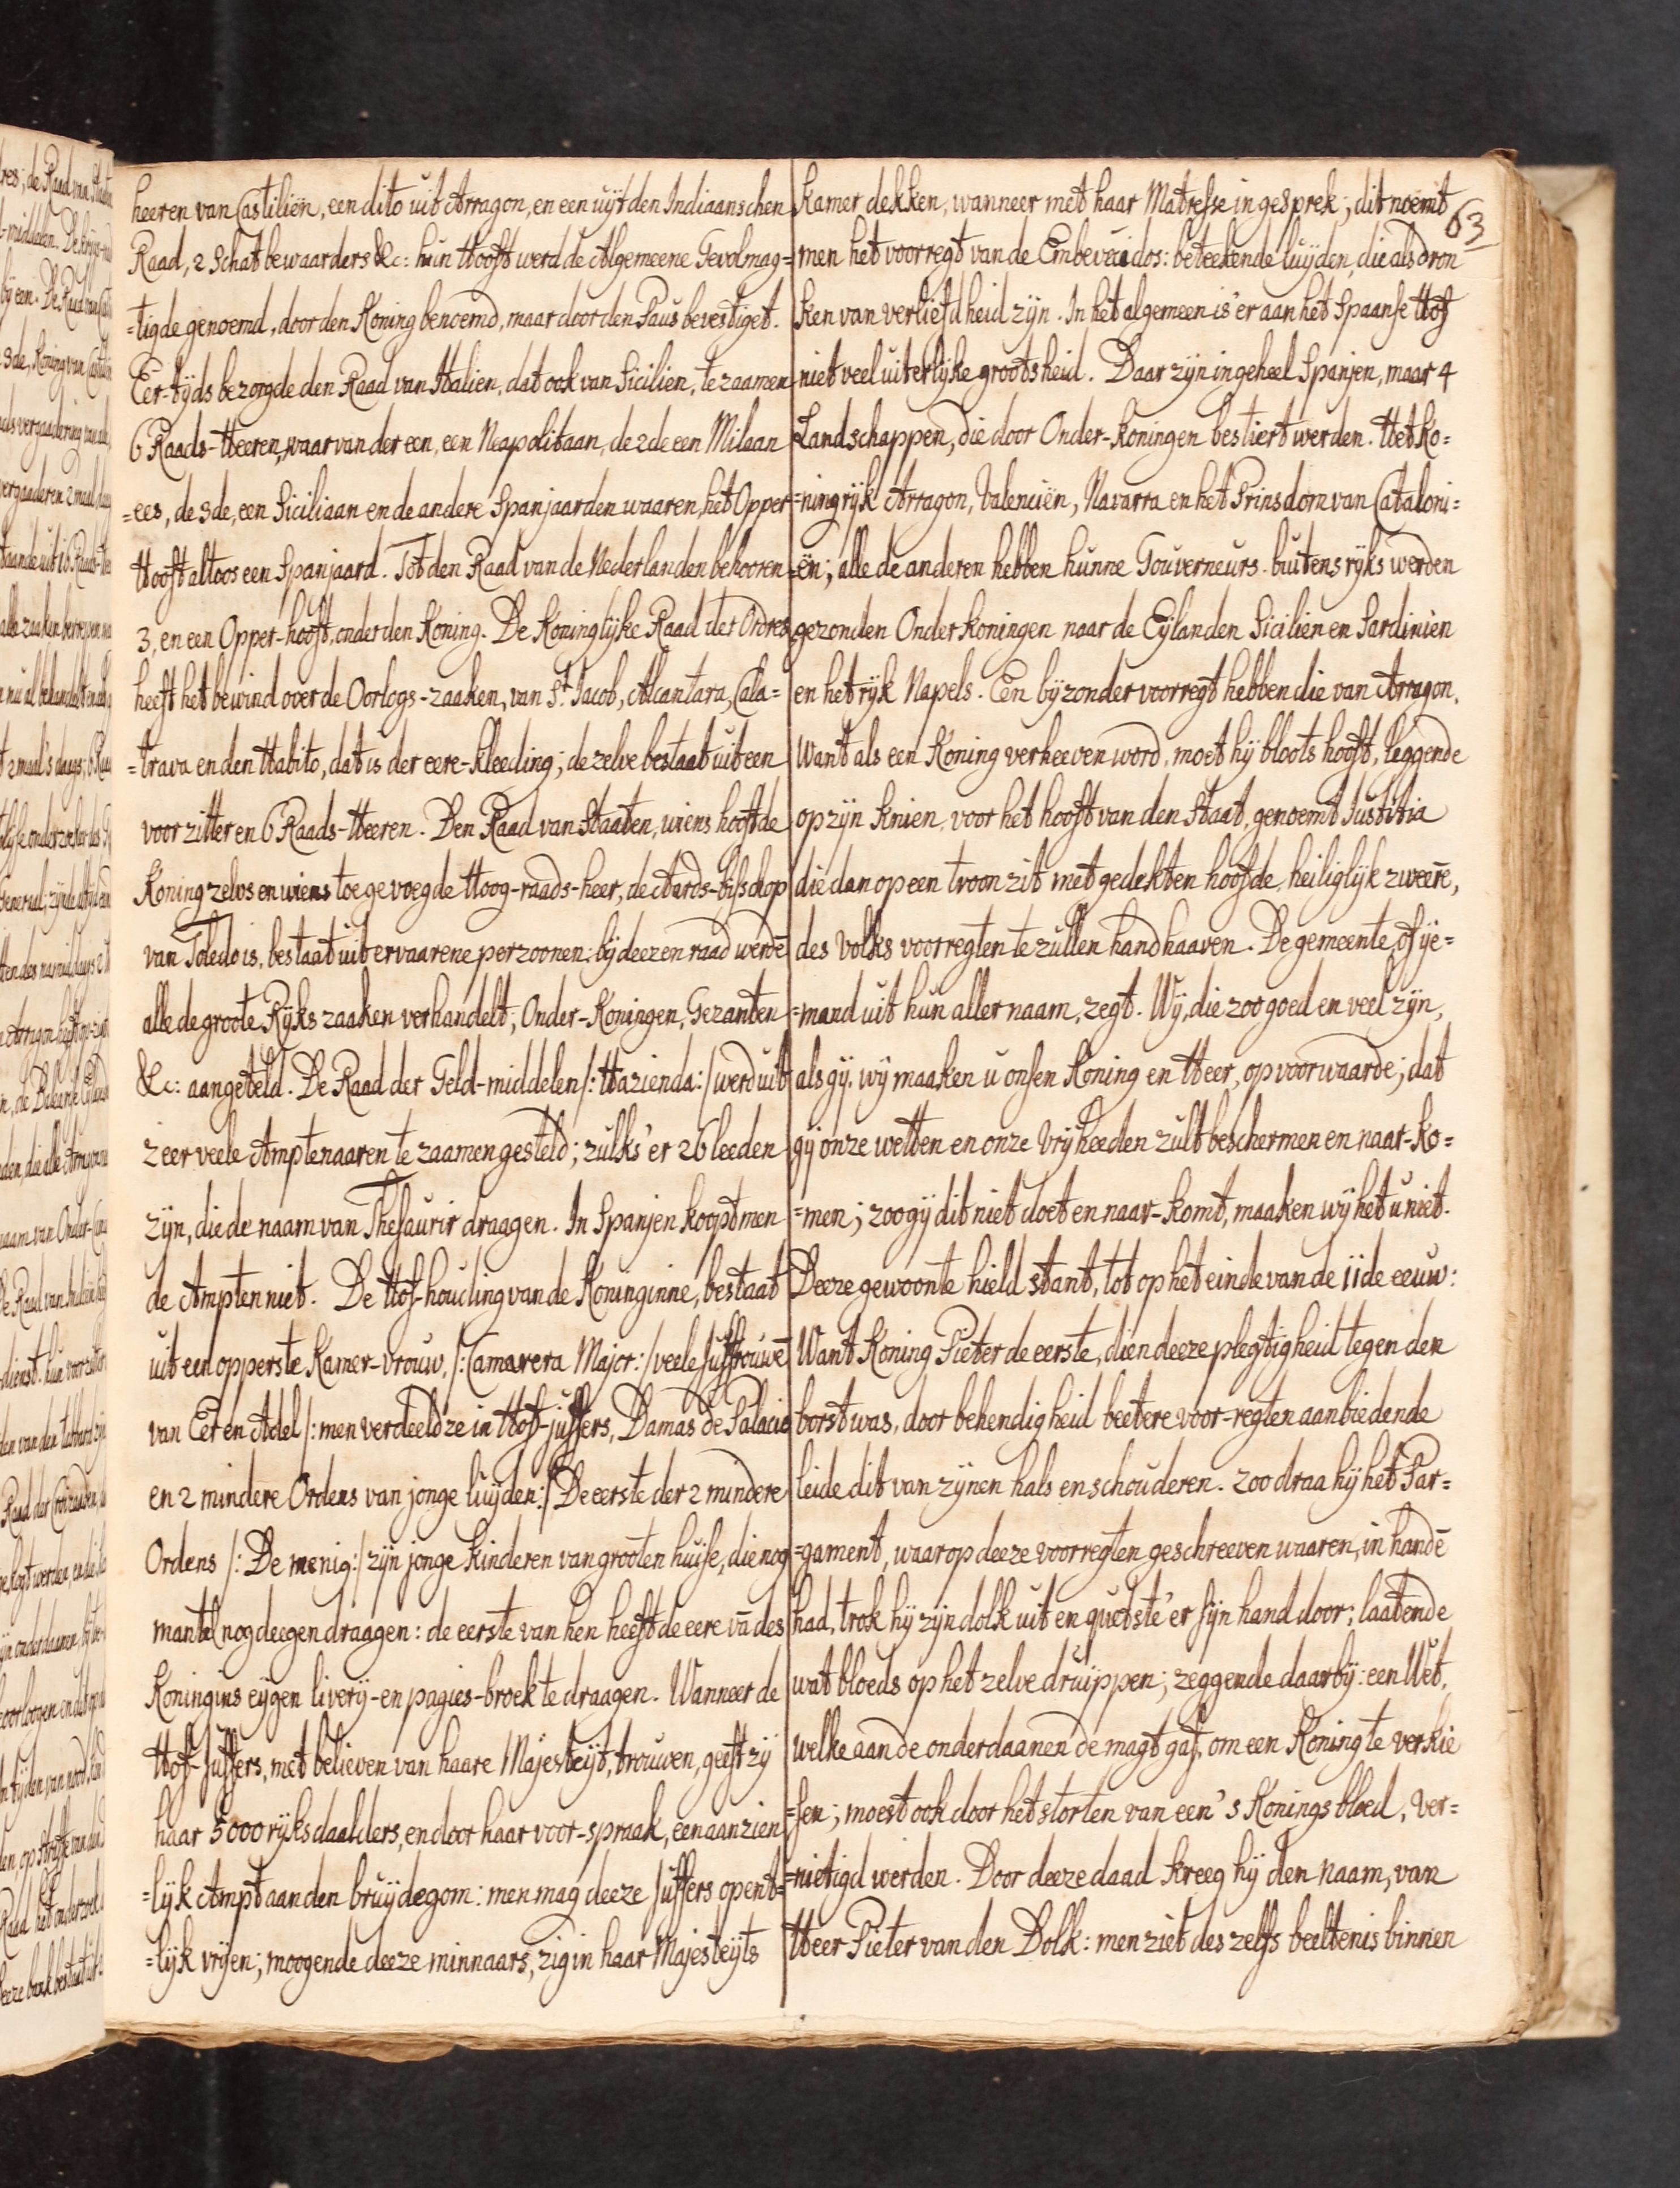 heeren van Castiliën, een dito uit Arragon, en een uÿt den Indiaanschen
Raad, 2 Schatbewaarders &c: hun Hooft werd de Algemeene Gevolmag=
=tigde genoemd, door den Koning benoemd, maar door den Paus bevestiget.
Eer-tÿds bezorgde den Raad van Italien, dat ook van Sicilien, te zaamen
6 Raads-Heeren, waar van der een, een Neapolitaan, de 2de een Milaan
=ees, de 3de, een Siciliaan en de andere Spanjaarden waaren, het Opper
Hooft altoos een Spanjaard. Tot den Raad van de Nederlanden behooren
3, en een Opper-hooft, onder den Koning. De Koninglÿke Raad der Ordres
heeft het bewind over de Oorlogs-zaaken, van St. Jacob, Alcantara, Cala=
=trava en den Habito, dat is der eere-kleeding; de zelve bestaat uit een
voorzitter en 6 Raads-Heeren. Den Raad van Staaten, wiens hooft de
Koning zelvs en wiens toegevoegde Hoog-raads-heer, de Aards-bisschop
van Toledo is, bestaat uit ervaarene perzoonen: bÿ deezen raad werdē
alle de groote Rÿks zaaken verhandelt, Onder-Koningen, Gezanten
&c: aangesteld. De Raad der Geld-middelen /: Hazienda :/ werd uit
zeer veele Amptenaaren te zaamen gesteld; zulks 'er 26 leeden
zÿn, die de naam van Thesaurir draagen. In Spanjen koopt men
de Ampten niet. De Hof-houding van de Koninginne, bestaat
uit een opperste Kamer-vrouw, /: Camarera Major :/ veele Juffrouwē
van Eer en Adel /: men verdeeld ze in Hof-juffers, Damas de Palacio
en 2 mindere Ordens van jonge luÿden :/ De eerste der 2 mindere
Ordens /: De menig :/ zÿn jonge kinderen van grooten huise, die nog
mantel nog deegen draagen: de eerste van hen heeft de eere vā des
Koningins eÿgen liverÿ-en pagies-broek te draagen. Wanneer de
Hof-Juffers, met believen van haare Majesteÿt, trouwen, geeft zÿ
haar 5000 rÿksdaalders, en door haar voor-spraak, een aanzien
=lÿk Ampt aan den bruÿdegom: men mag deeze Juffers opent=
=lÿk vrÿen; moogende deeze minnaars, zig in haar Majesteÿts
63
Kamer dekken, wanneer met haar Matresse in gesprek; dit noemt
men het voorregt van de Embevecidos: beteekende luÿden, die als dron
ken van verliefdheid zÿn. In het algemeen is 'er aan het Spaanse Hof
niet veel uiterlÿke grootsheid. Daar zÿn in geheel Spanjen, maar 4
Landschappen, die door Onder-koningen bestiert werden. Het Ko=
=ningrÿk Arragon, Valenciën, Navarra en het Prinsdom van Cataloni=
=ën; alle de anderen hebben hunne Gouverneurs. buitens rÿks werden
gezonden Onderkoningen naar de Eÿlanden Siciliën en Sardiniën
en het rÿk Napels. Een bÿzonder voorregt hebben die van Arragon.
Want als een Koning verheeven word, moet hÿ bloots hooft, leggende
op zÿn knien, voor het hooft van den Staat, genoemt Justitia
die dan op een troon zit met gedekten hoofde, heiliglÿk zweerē,
des Volks voorregten te zullen handhaaven. De gemeente, of ÿe=
=mand uit hun aller naam, zegt. Wÿ, die zoo goed en veel zÿn,
als gÿ, wÿ maaken u onsen Koning en Heer, op voorwaarde; dat
gÿ onze wetten en onze Vrÿheeden zult beschermen en naar-ko=
=men; zoo gÿ dit niet doet en naar-komt, maaken wÿ het u niet.
Deeze gewoonte hield stant, tot op het einde van de 11de eeuw:
Want Koning Pieter de eerste, dien deeze plegtigheid tegen den
borst was, door behendigheid beetere voor-regten aanbiedende
leide dit van zÿnen hals en schouderen. zoo draa hÿ het Par=
=gament, waar op deeze voorregten geschreeven waaren, in handē
had, trok hÿ zÿn dolk uit en quetste 'er sÿn hand door; laatende
wat bloeds op het zelve druippen; zeggende daarbÿ: een Wet,
welke aan de onderdaanen de magt gaf, om een Koning te verkie
=sen; moest ook door het storten van een 's Konings bloed, ver=
=nietigd werden. Door deeze daad kreeg hÿ den naam, van
Heer Pieter van den Dolk: men ziet des zelfs beeltenis binnen